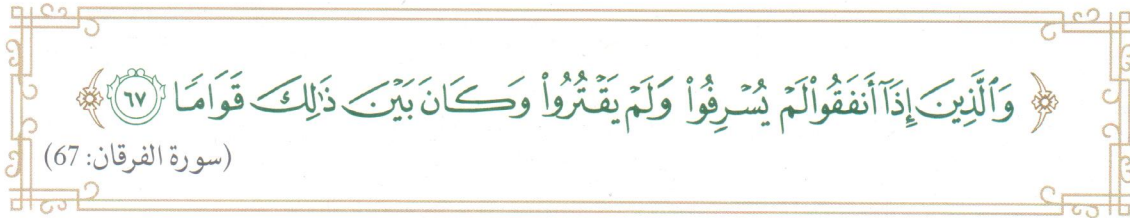 ﴿ وَٱلَّذِينَ إِذَآ أَنفَقُوا۟ لَمْ يُسْرِفُوا۟ وَلَمْ يَقْتُرُوا۟ وَكَانَ بَيْنَ ذَٰلِكَ قَوَامًا ٦٧ ﴾
(سورة الفرقان: 67)